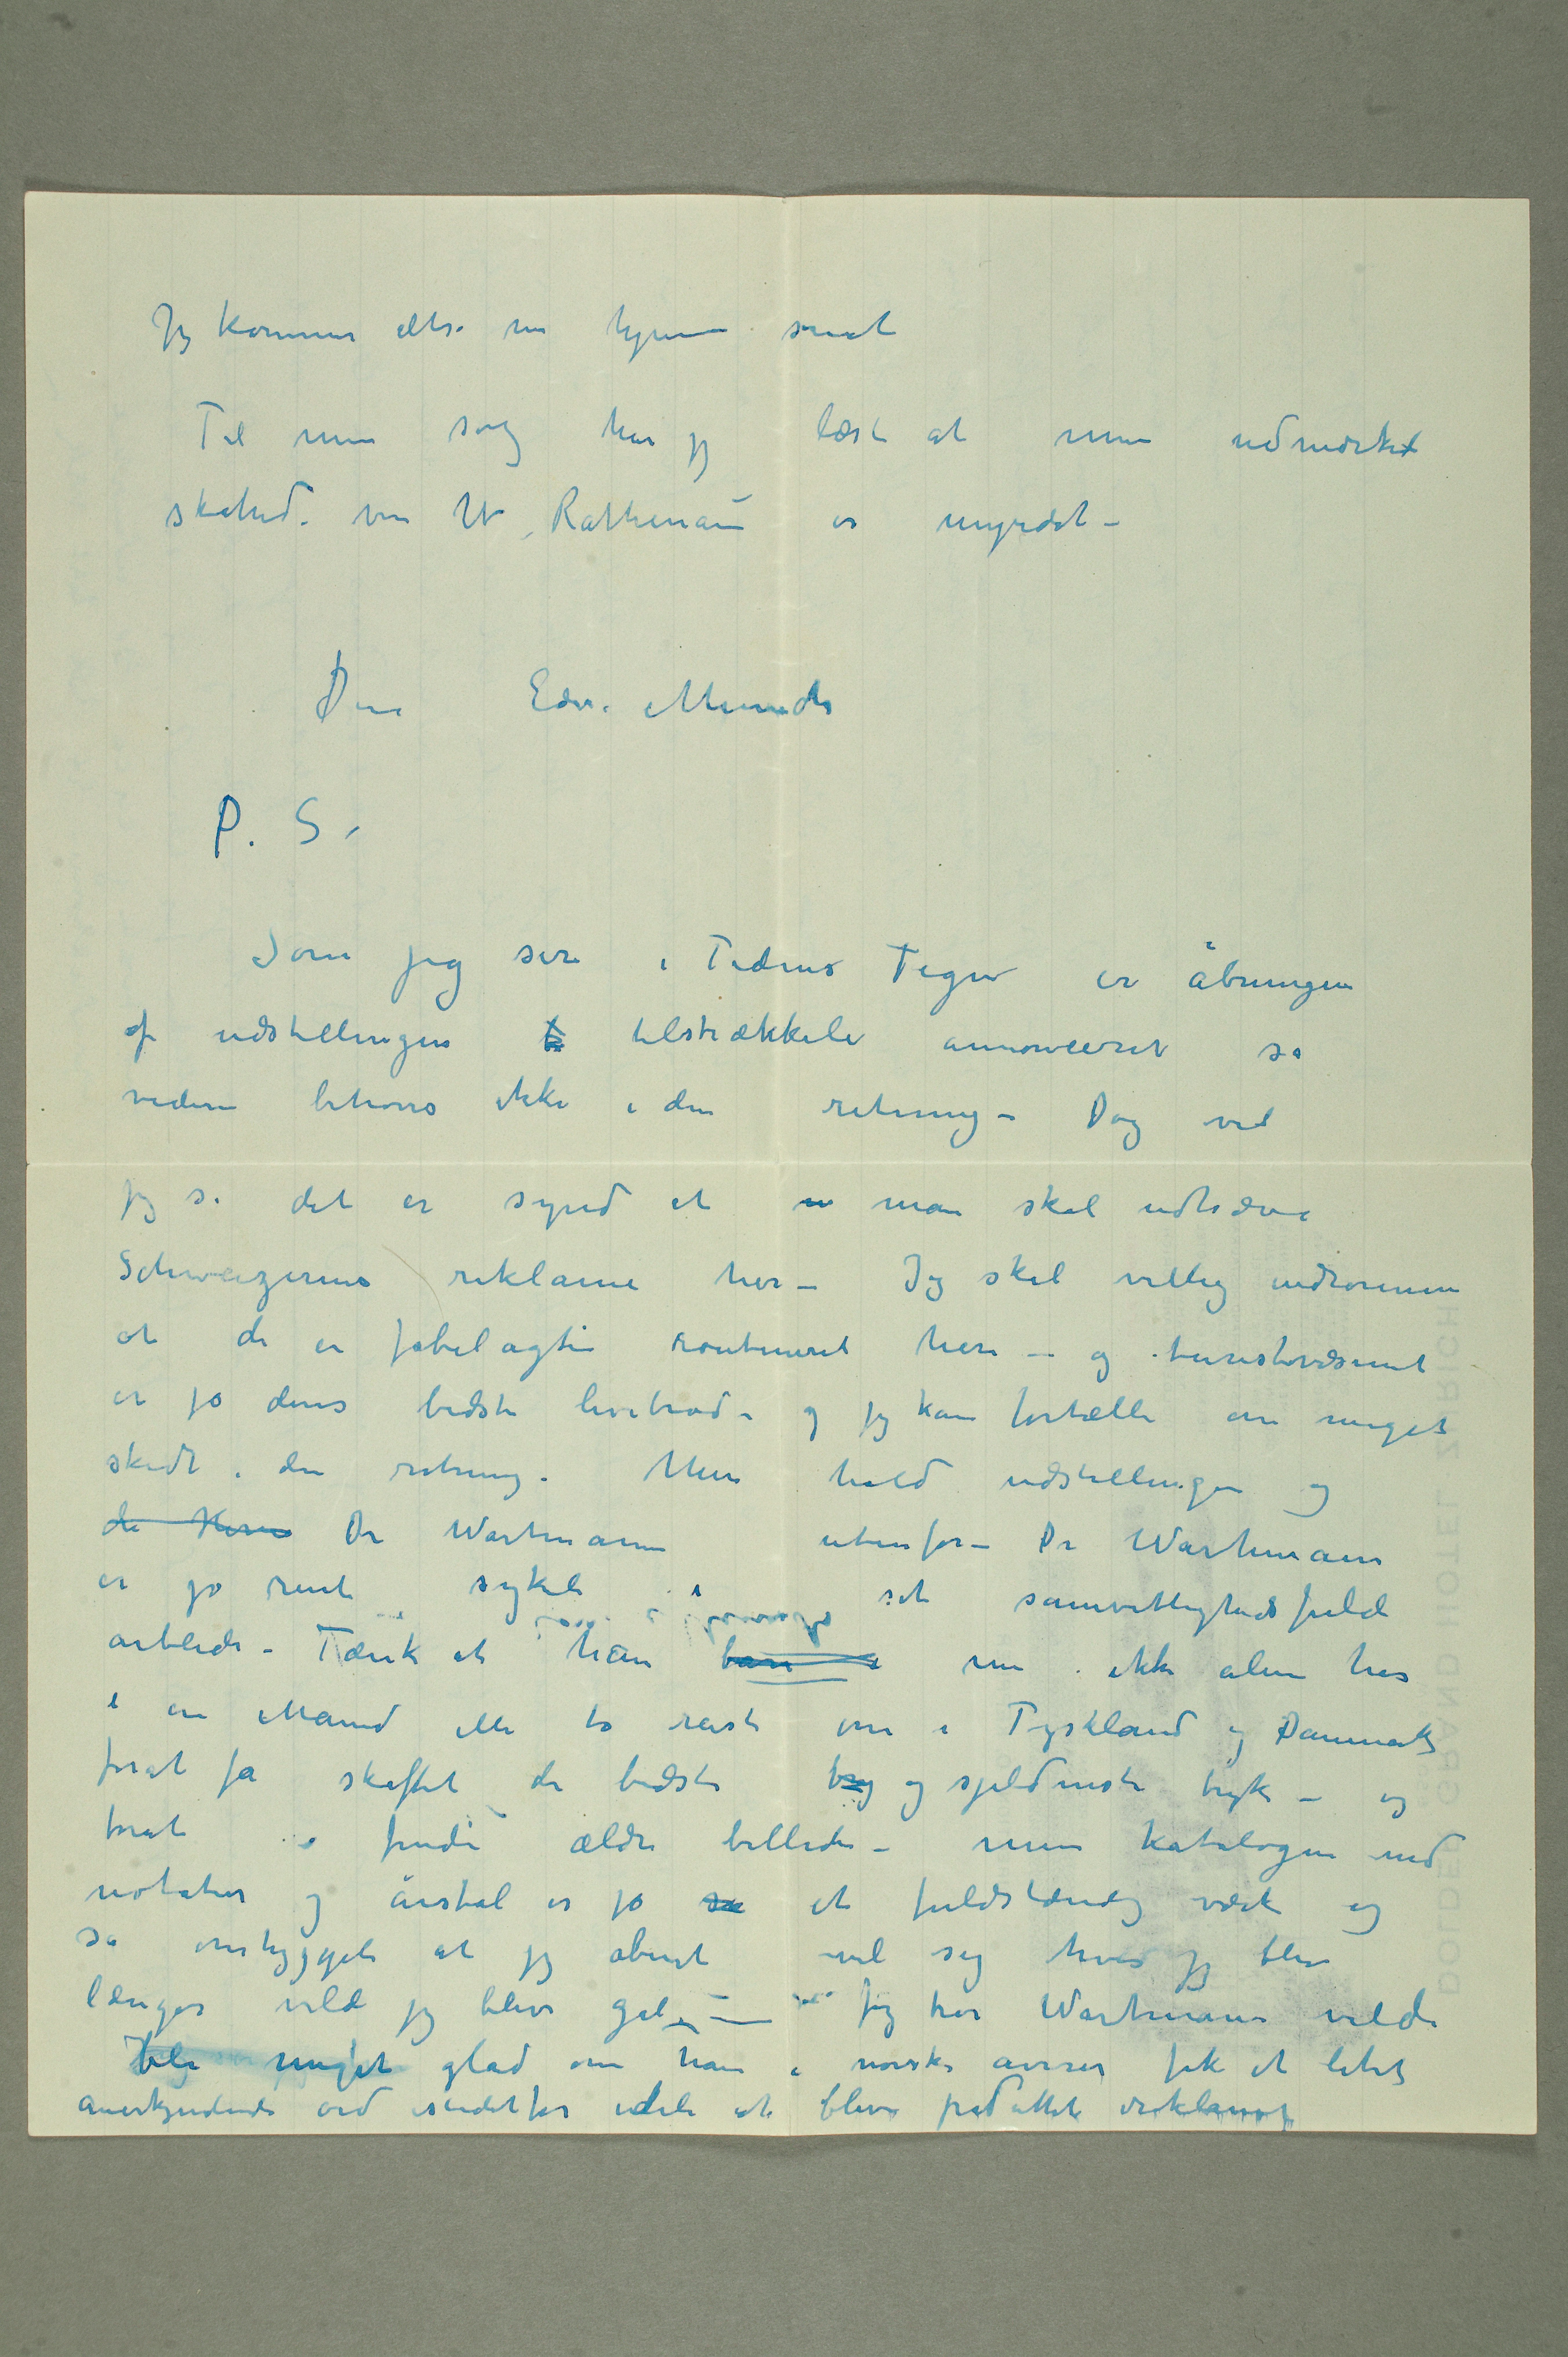 Jeg kommer altså nu hjem snart
Til min sorg har jeg læst at min udmærket
skattede ven W. Rathenau er myrdet –
Din Edv. Munch
P. S.
Som jeg ser i Tidens Tegn er åbningen
af udstillingen tilstrækkeli annonceret så
videre behøves ikke i den retning – Dog vil
jeg si det er synd at man skal udhæve
Schweizernes reklame her – Jeg skal villig indrømme
at de er fabelagtig routineret her – og turistvæsenet
er jo deres bedste levebrød – og jeg kan fortælle om meget
skidt i den retning. Men hold udstillingen og
de Herrer Dr Wartmann utenfor – Dr Wartmann
er jo rent sykeli i sit samvittighedsfulde
arbeide – Tænk at han bare i nu ikke alene har
i en Maaned eller to reist om i Tyskland og Danmark
forat få skaffet de bedste og sjeldneste tryk – og
forat finde ældre billeder – men katalogen med
notater og årstal er jo så et fuldstændig værk og
så omhyggeli at jeg åbent vil sige hvis jeg blev
længer vilde jeg blive gal – Jeg tror Wartmann vilde
bli meget glad om han i norske aviser fik et litet
anerkjendende ord istedetfor at blive påduttet reklame
DOLDER GRAND HOTEL ZÜRICH